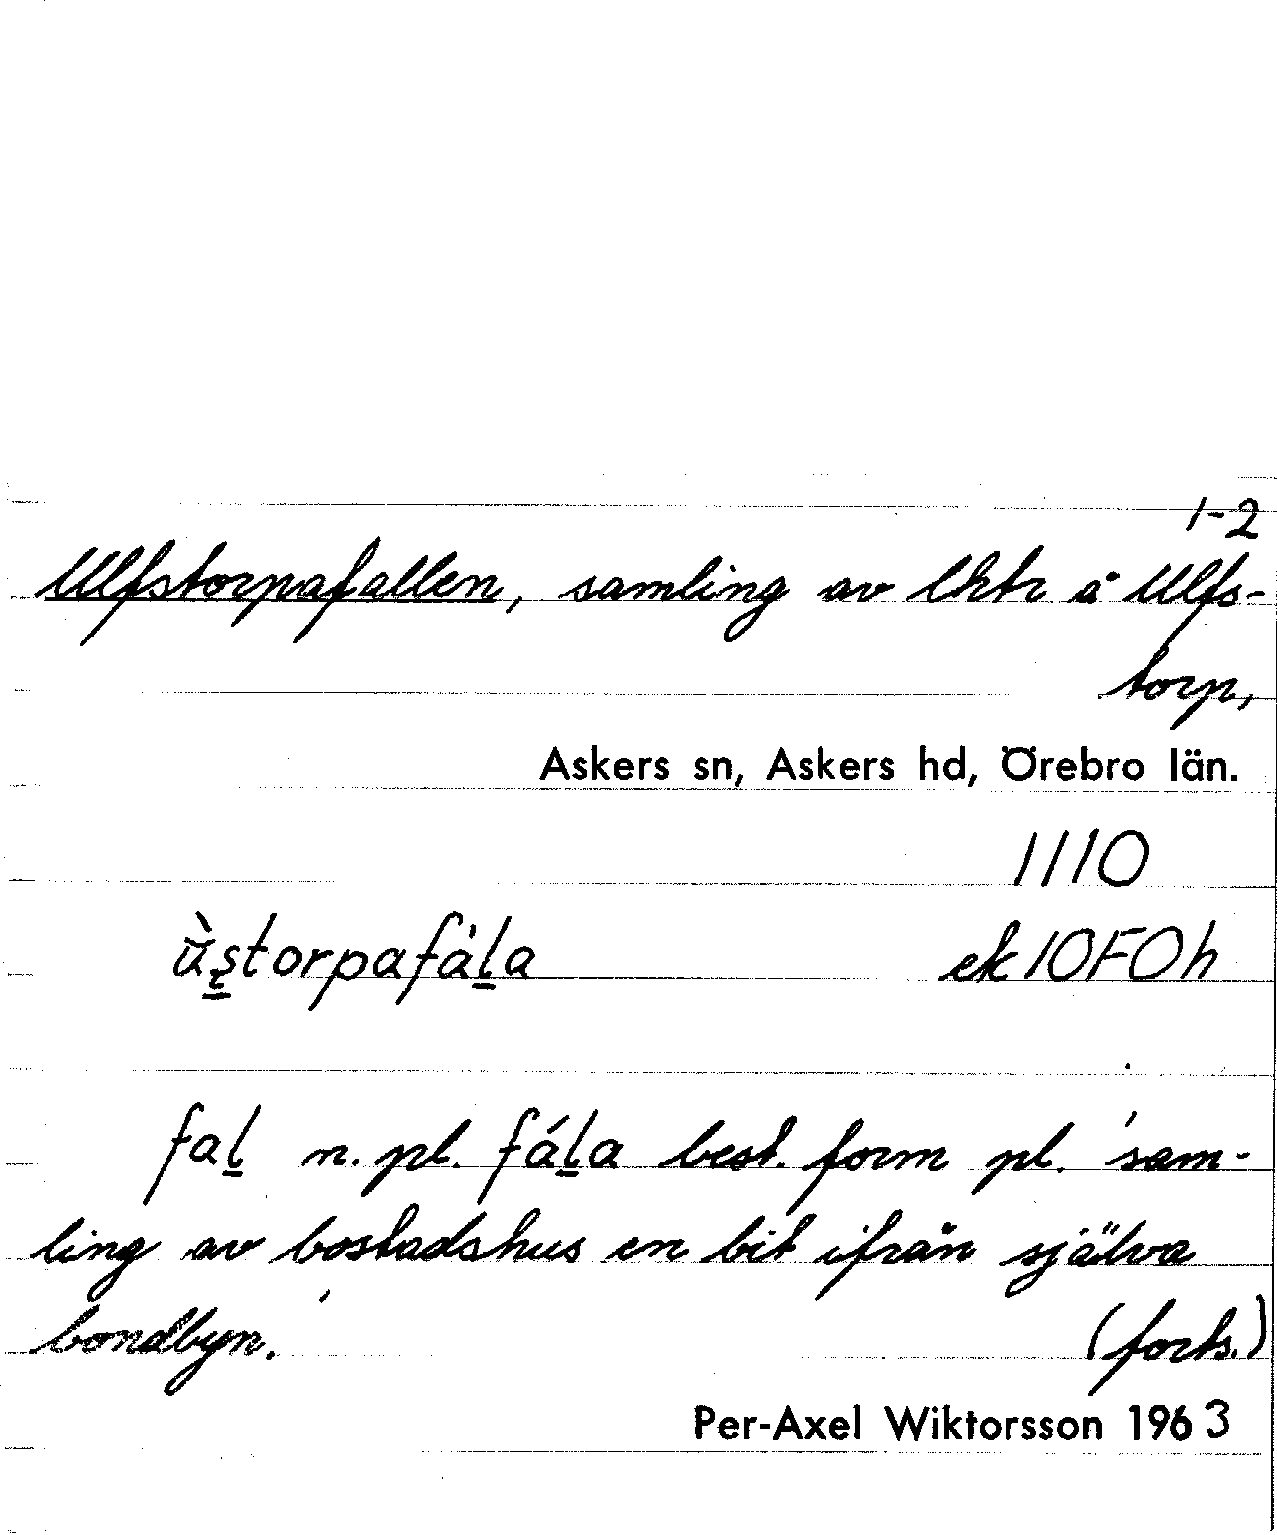 1-2
Ulfstorpafallen, samling av lht r å Ulfs-
torp,
Askers sn, Askers hd, Örebro län.
1110
ek 10F0h
fal n. pl. fála best. form pl. 'sam-
ling av bostadshus en bit ifrån själva
bondbyn.' (forts.)
Per-Axel Wiktorsson 1963